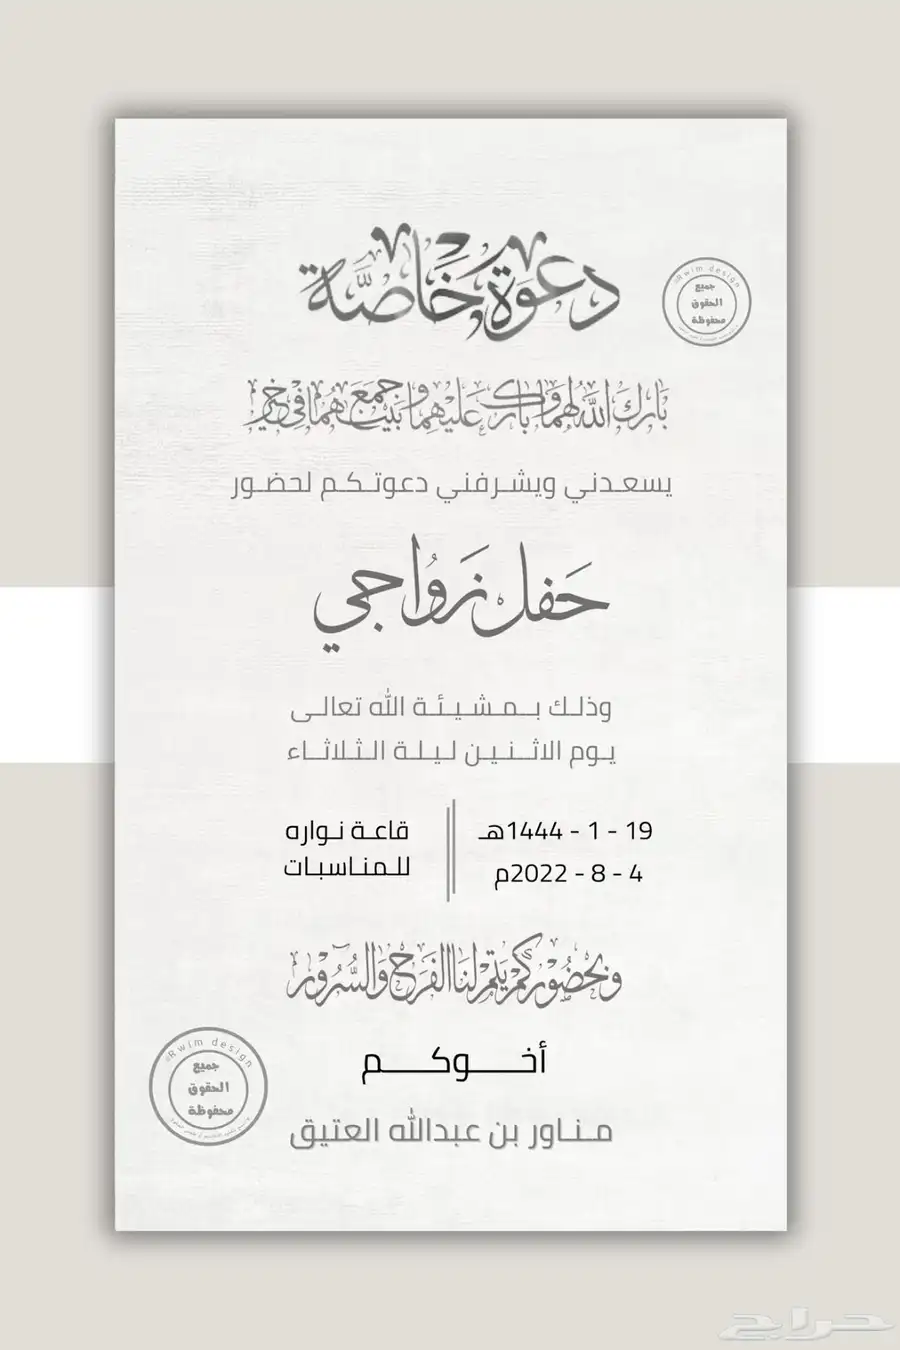 دعوة خاصة
®Rwim design
جميع
الحقوق
محفوظة
بارك الله لهما وبارك عليهما وجمع بينهما في خير
يسعدني ويشرفني دعوتكم لحضور
حفل زواجي
وذلك بمشيئة الله تعالى
يوم الاثنين ليلة الثلاثاء
19 - 1 - 1444هـ
4 - 8 - 2022م
قاعة نواره
للمناسبات
وبحضوركم يتم لنا الفرح والسرور
أخوكم
مناور بن عبدالله العتيق
®Rwim design
جميع
الحقوق
محفوظة
حراج